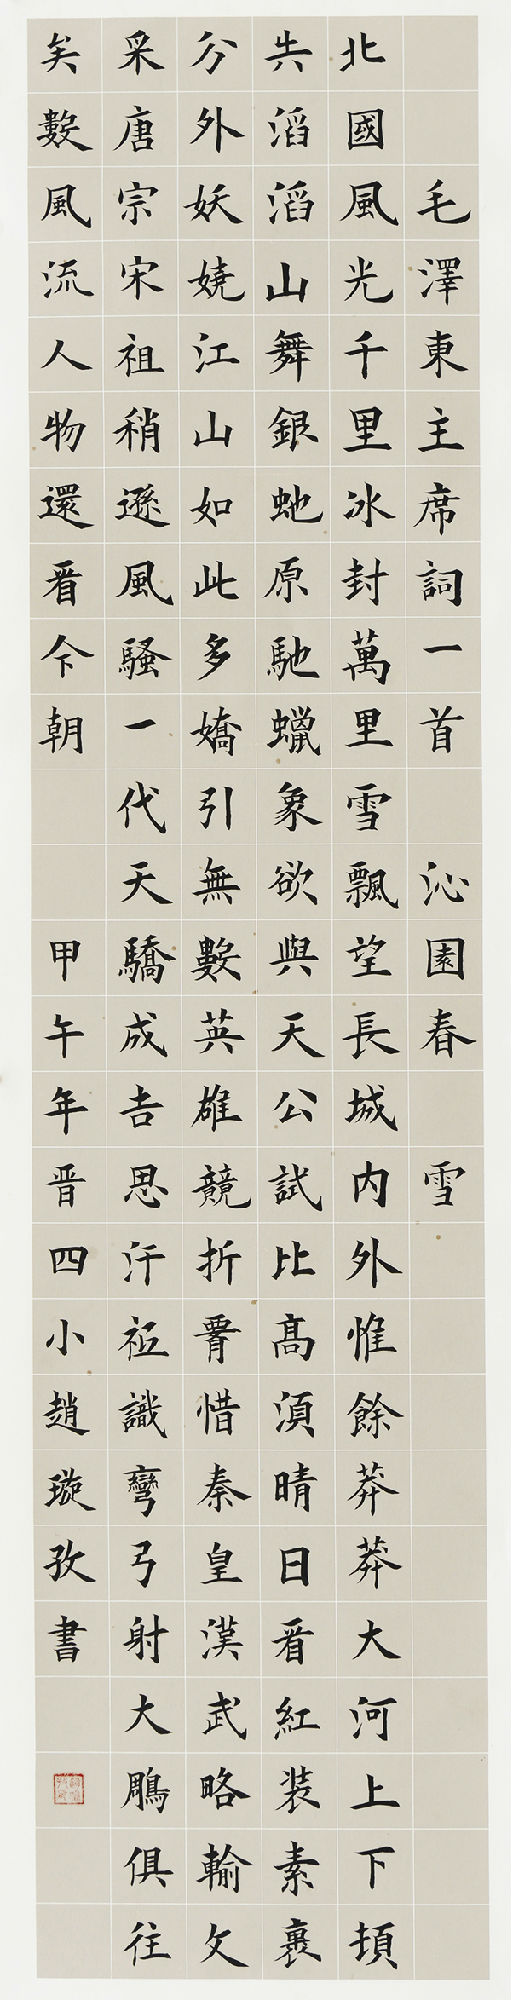 毛澤東主席詞一首 沁園春 雪
北國風光千里冰封萬里雪飄望長城内外惟餘莽莽大河上下頓
失滔滔山舞銀虵原馳蠟象欲與天公試比髙須晴日看紅裝素裹
分外妖嬈江山如此多嬌引無數英雄競折腰惜秦皇漢武略輸文
采唐宗宋祖稍遜風騷一代天驕成吉思汗祗識彎弓射大鵰俱往
矣數風流人物還看今朝 甲午年晋四小趙璇孜書